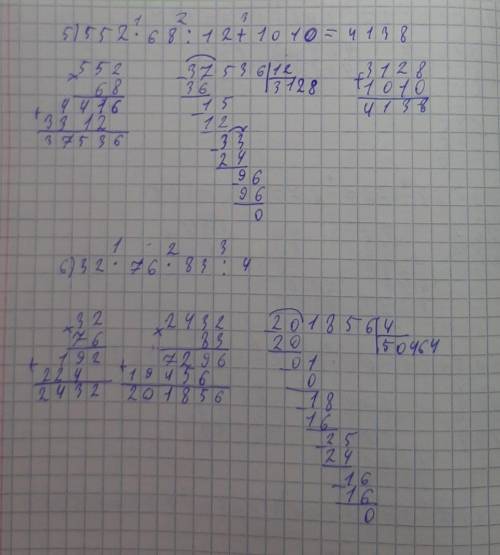 1 2 3
5) 552 · 68 : 12 + 1010 = 4138
× 552
68
+ 4416
3312
37536
- 37536 | 12
36 | 3128
- 15
12
- 33
24
- 96
96
0
+ 3128
1010
4138
1 2 3
6) 32 · 76 · 83 : 4
× 32
76
+ 192
224
2432
× 2432
83
+ 7296
19456
201856
- 201856 | 4
20 | 50464
- 01
0
- 18
16
- 25
24
- 16
16
0